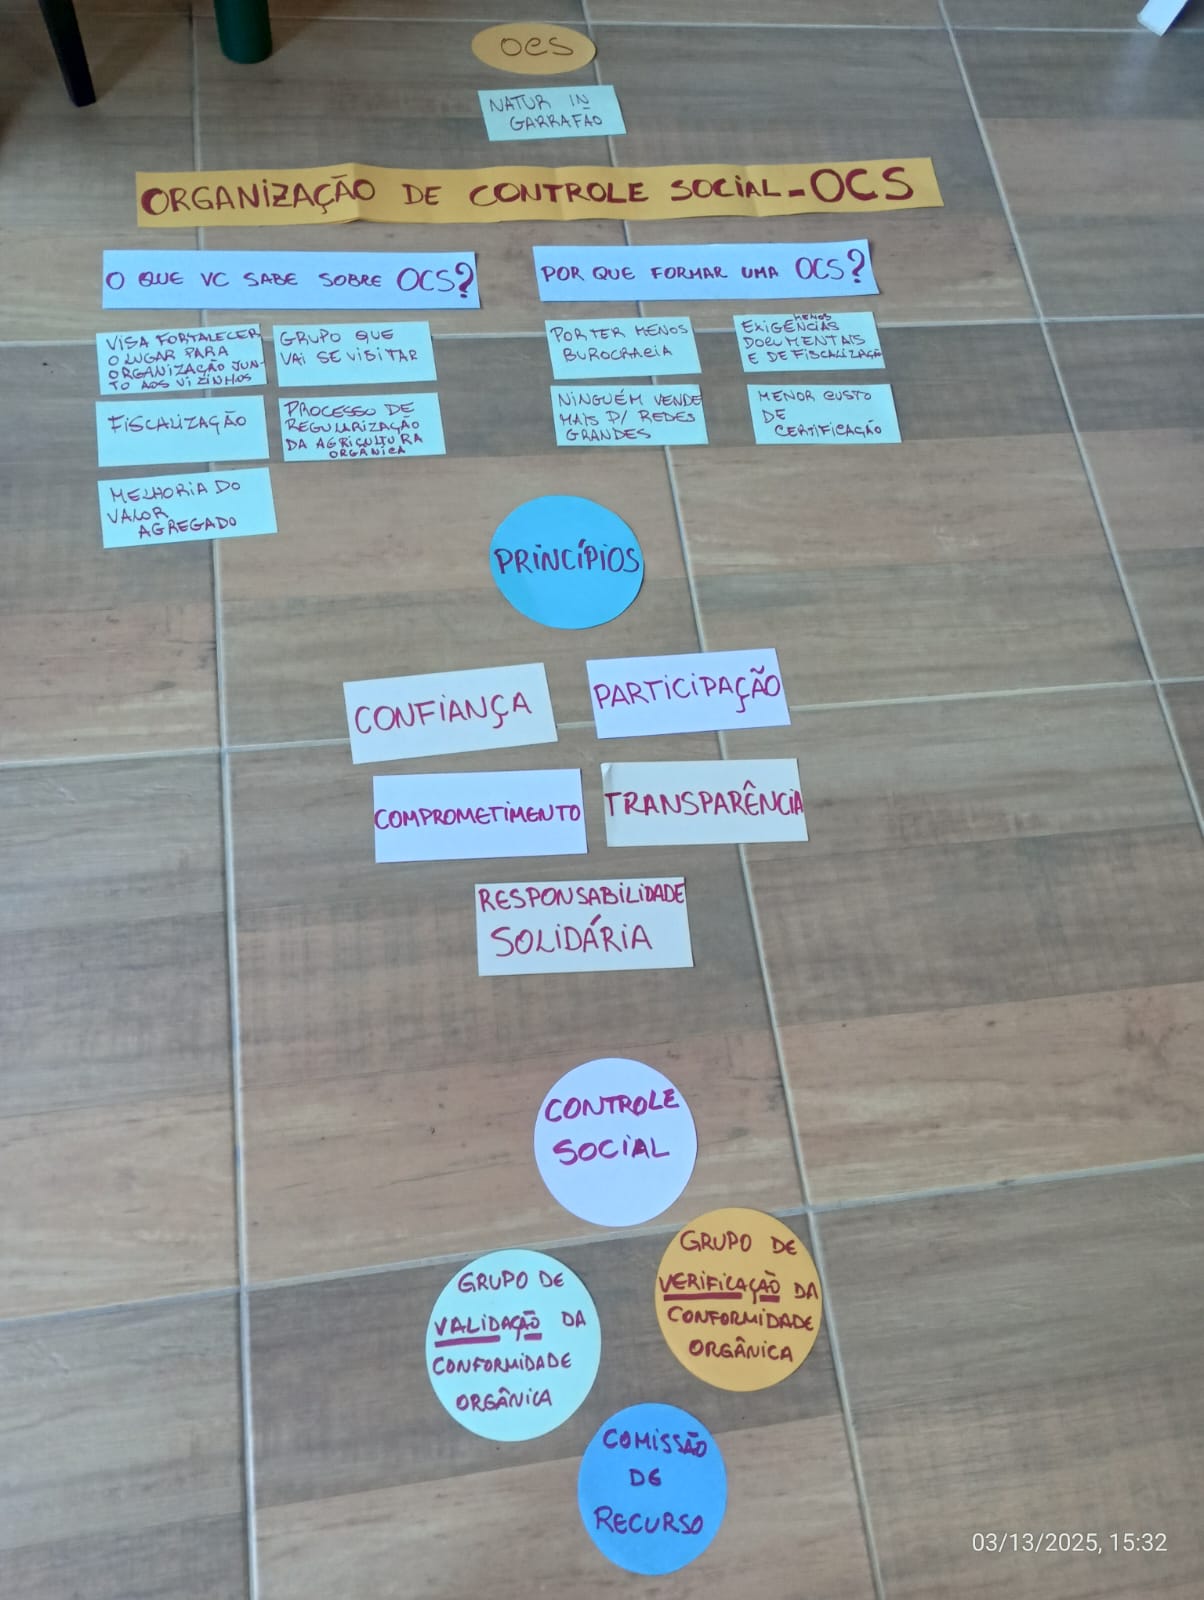 OCS
NATUR IN
GARRAFÃO
ORGANIZAÇÃO DE CONTROLE SOCIAL-OCS
O QUE VC SABE SOBRE OCS?
VISA FORTALECER
O LUGAR PARA
ORGANIZAÇÃO JUN-
TO AOS VIZINHOS
GRUPO QUE
VAI SE VISITAR
FISCALIZAÇÃO
PROCESSO DE
REGULARIZAÇÃO
DA AGRICULTURA
ORGÂNICA
MELHORIA DO
VALOR
AGREGADO
POR QUE FORMAR UMA OCS?
POR TER MENOS
BUROCRACIA
MENOS
EXIGÊNCIAS
DOCUMENTAIS
E DE FISCALIZAÇÃO
NINGUÉM VENDE
MAIS P/ REDES
GRANDES
MENOR CUSTO
DE
CERTIFICAÇÃO
PRINCÍPIOS
CONFIANÇA
PARTICIPAÇÃO
COMPROMETIMENTO
TRANSPARÊNCIA
RESPONSABILIDADE
SOLIDÁRIA
CONTROLE
SOCIAL
GRUPO DE
VALIDAÇÃO DA
CONFORMIDADE
ORGÂNICA
GRUPO DE
VERIFICAÇÃO DA
CONFORMIDADE
ORGÂNICA
COMISSÃO
DE
RECURSO
03/13/2025, 15:32